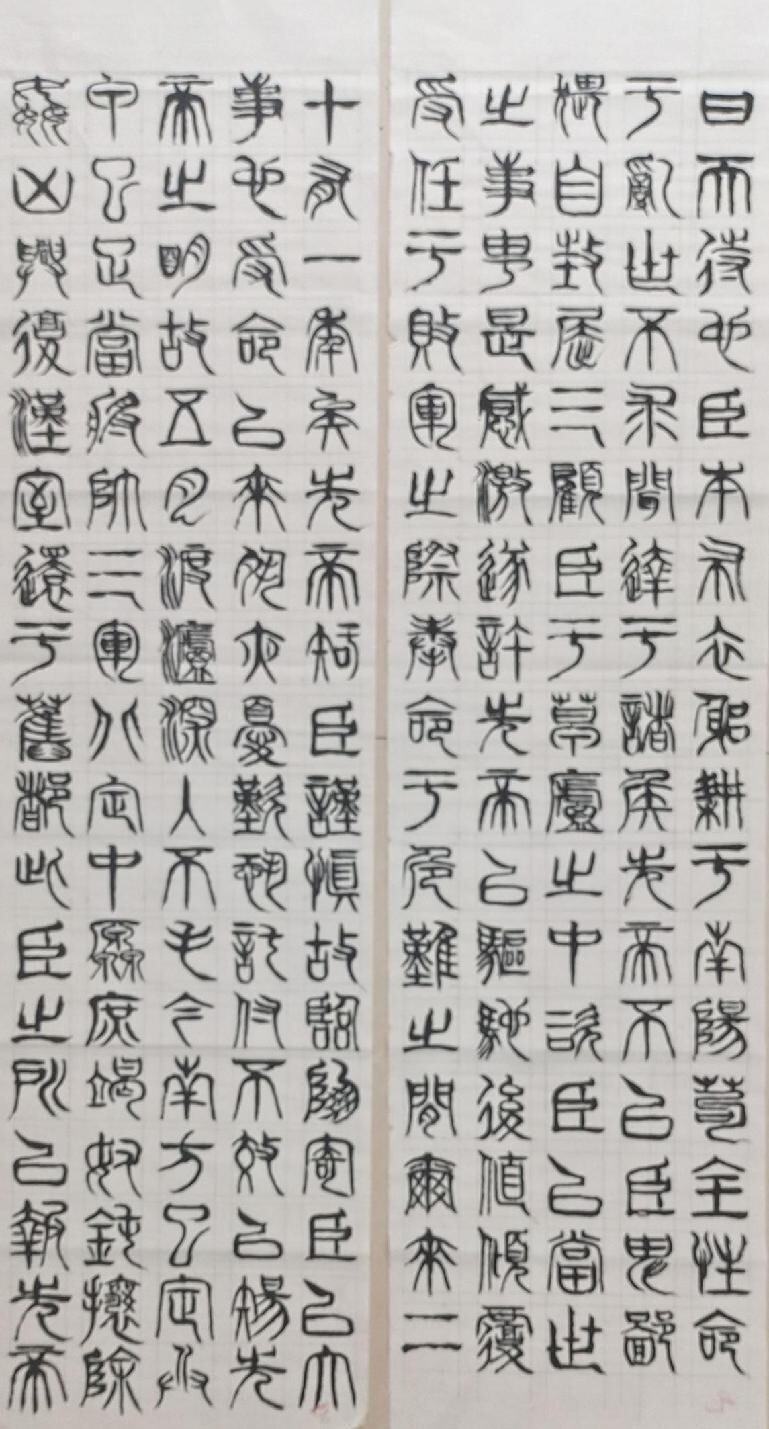 日而待也臣本布衣躬耕于南陽苟全性命
于亂世不求聞達于諸侯先帝不以臣卑鄙
猥自枉屈三顧臣于草廬之中諮臣以當世
之事由是感激遂許先帝以驅馳後值傾覆
受任于敗軍之際奉命于危難之間爾來二
十有一年矣先帝知臣謹慎故臨崩寄臣以大
事也受命以來夙夜憂歎恐託付不效以傷先
帝之明故五月渡瀘深入不毛今南方已定兵
甲已足當獎帥三軍北定中原庶竭奴鈍攘除
姦凶興復漢室還于舊都此臣之所以報先帝